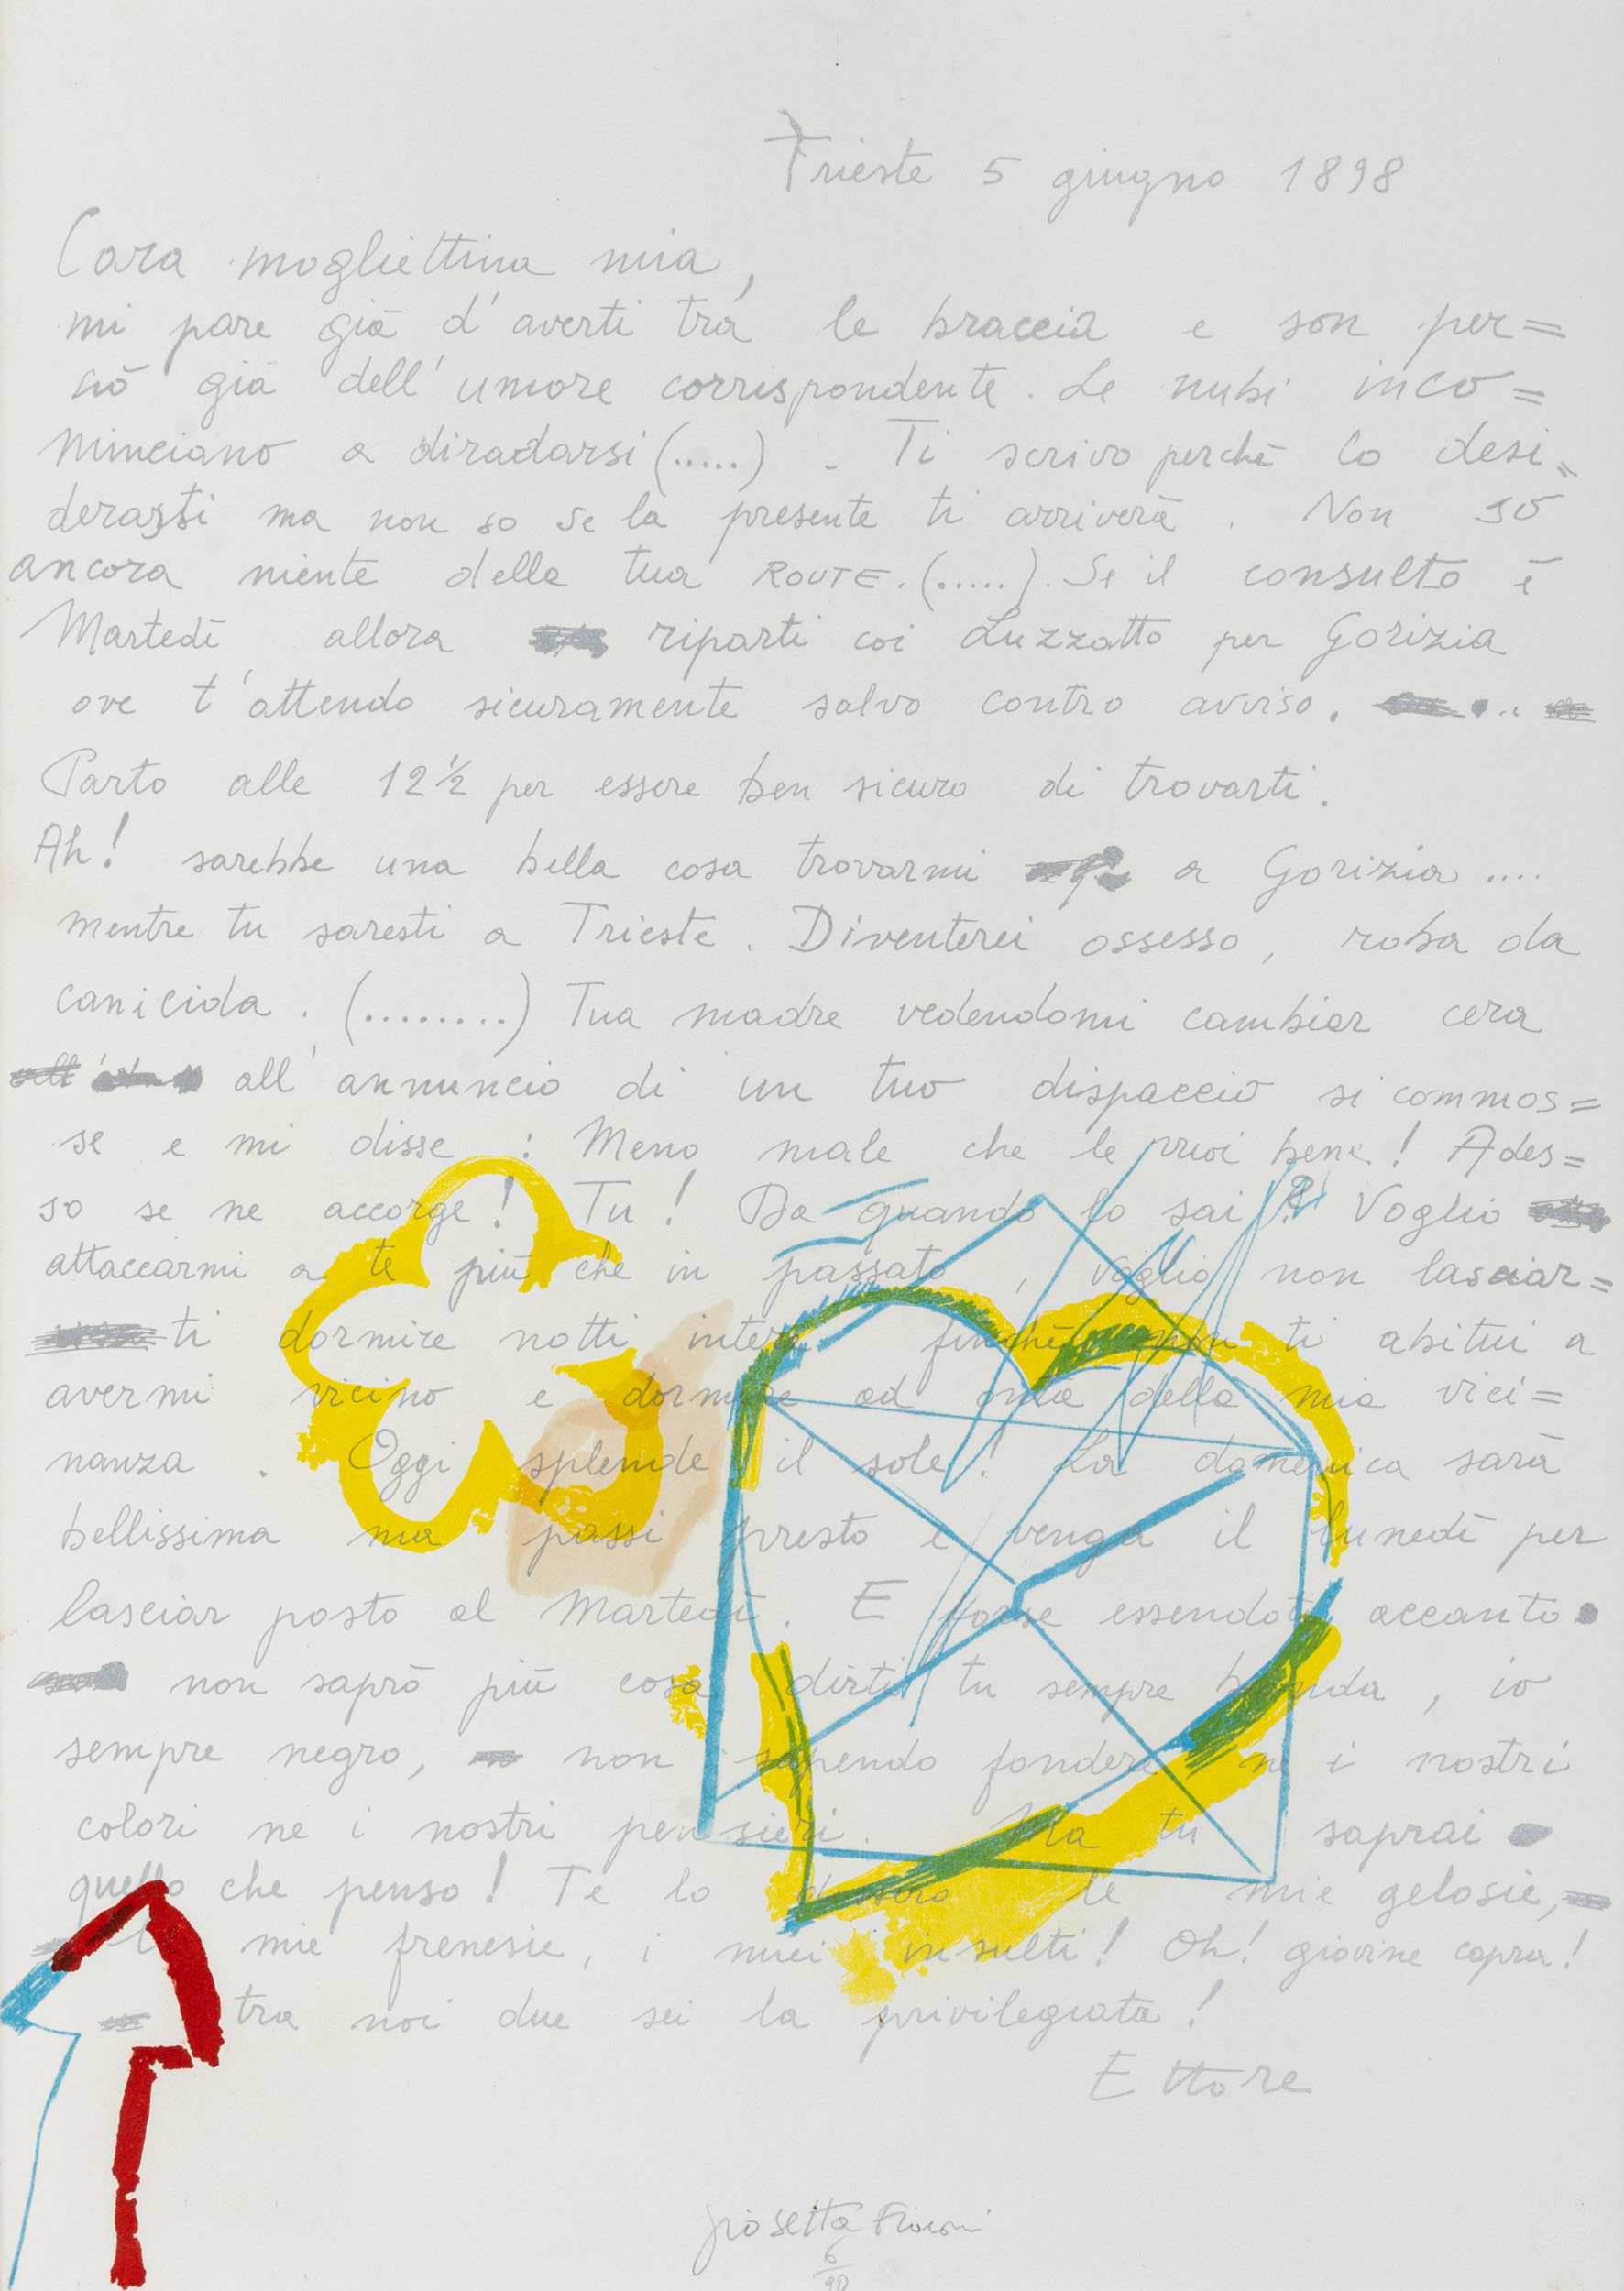 Trieste 5 giugno 1898
Cara mogliettina mia,
mi pare già d'averti tra le braccia e son per=
ciò già dell'umore corrispondente. Le nubi inco=
minciano a diradarsi (.....) - Ti scrivo perchè lo desi=
derasti ma non so se la presente ti arriverà. Non so
ancora niente della tua ROUTE. (.....). Se il consulto è
Martedì, allora riparti coi Luzzatto per Gorizia
ove t'attendo sicuramente salvo contro avviso.
Parto alle 12½ per essere ben sicuro di trovarti.
Ah! sarebbe una bella cosa trovarmi a Gorizia ....
mentre tu saresti a Trieste. Diventerei ossesso, roba da
canicida. (........) Tua madre vedendomi cambiar cera
all'annuncio di un tuo dispaccio si commos=
se e mi disse : Meno male che le vuoi bene! Ades=
so se ne accorge! Tu! Da quando lo sai? Voglio
attaccarmi a te più che in passato, voglio non lasciar=
ti dormire notti intere finchè non ti abitui a
avermi vicino e dormire ad onta della mia vici=
nanza. Oggi splende il sole! La domenica sarà
bellissima ma passi presto e venga il lunedì per
lasciar posto al Martedì. E forse essendoti accanto
non saprò più cosa dirti tu sempre bionda, io
sempre negro, non sapendo fondere ne i nostri
colori ne i nostri pensieri. Ma tu saprai
quello che penso! Te lo dissero le mie gelosie,
le mie frenesie, i miei insulti! Oh! giovine capra!
tra noi due sei la privilegiata!
Ettore
Giosetta Fioroni
6/90